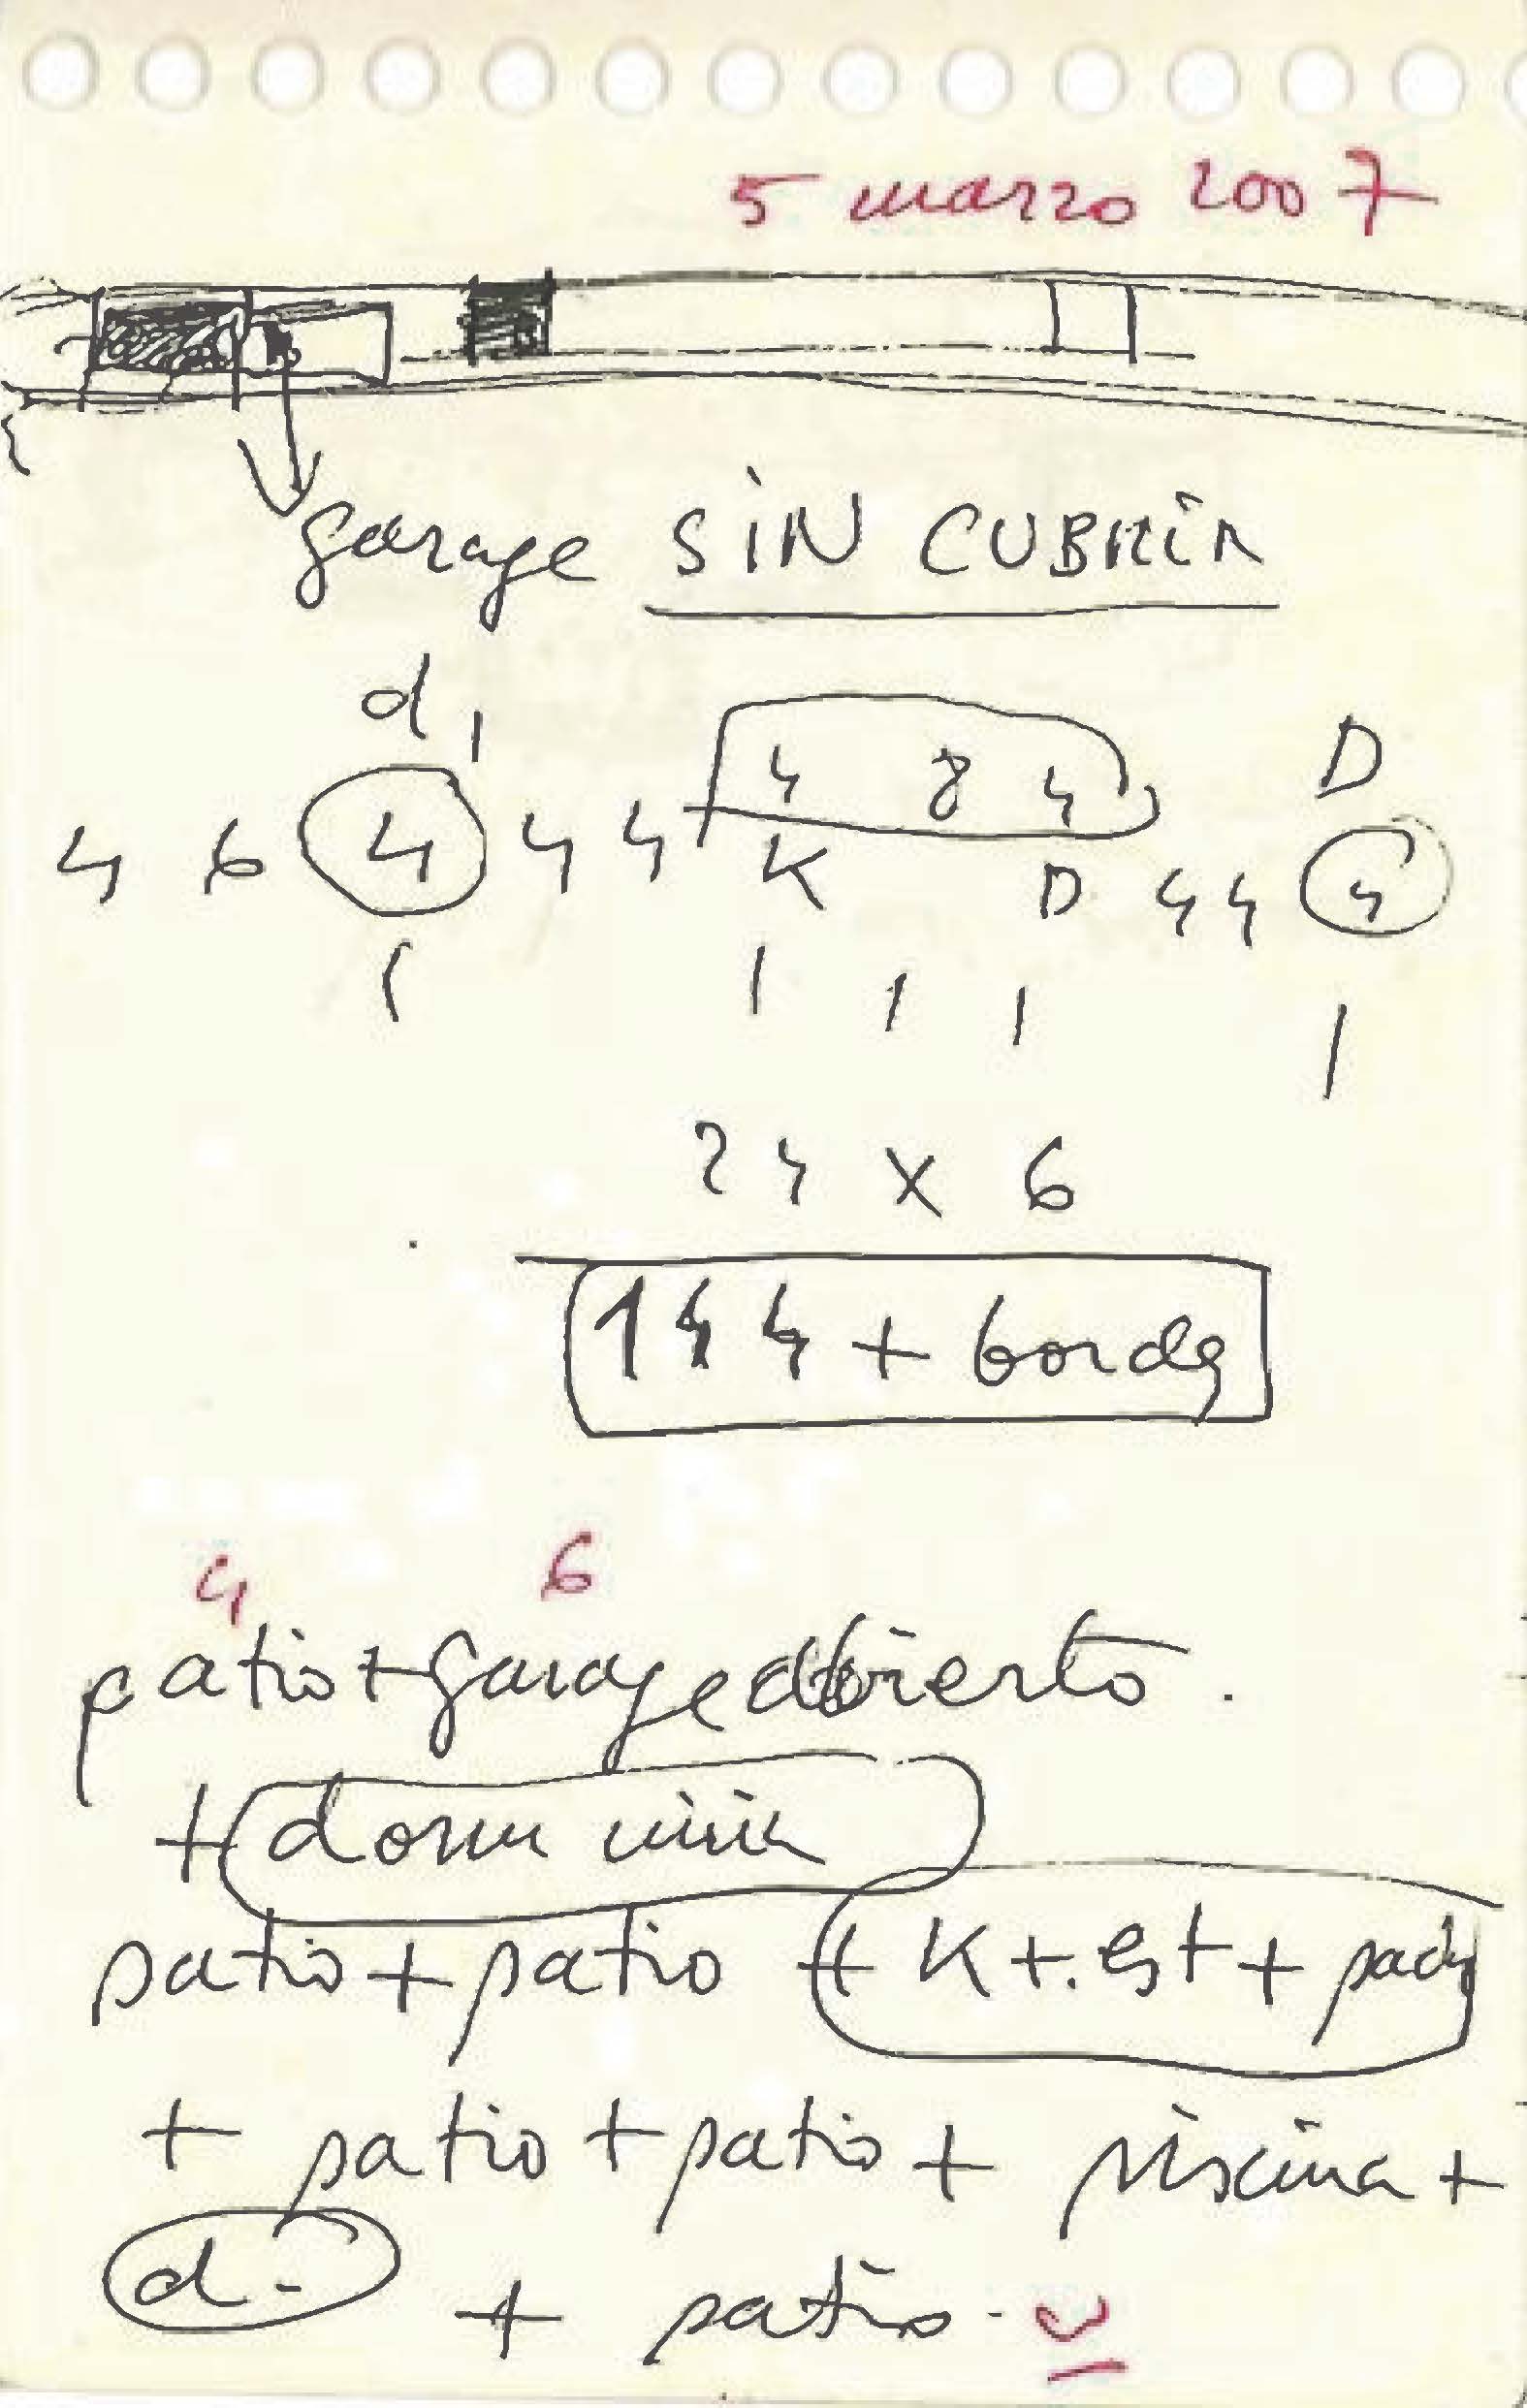 5 marzo 2007
garage SIN CUBRIR
d
4 8 4
D
4 6 4 4 4
K
D 4 4 4
24 x 6
144 + bordes
4 6
patio + garage abierto.
+ dorm
patio + patio + K + est +
+ patio + patio + piscina +
d. + patio.